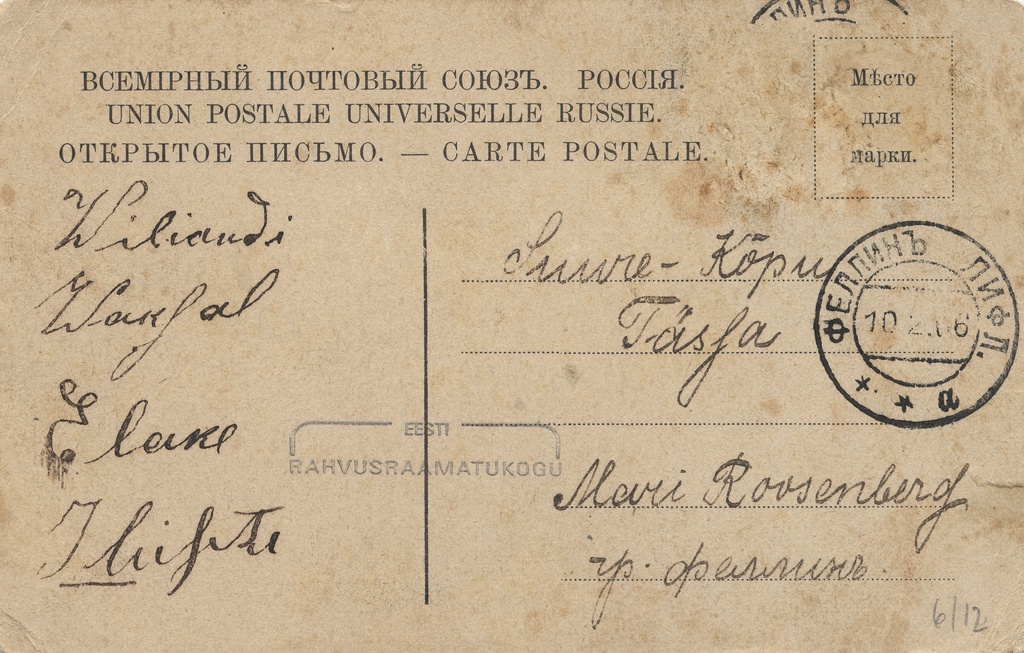 ПИНЪ
ВСЕМІРНЫЙ ПОЧТОВЫЙ СОЮЗЪ. РОССІЯ.
UNION POSTALE UNIVERSELLE RUSSIE.
ОТКРЫТОЕ ПИСЬМО. — CARTE POSTALE.
Мѣсто
для
марки.
Wiliandi
Waksal
Elake
Suure-Kõpu
Tässa
ФЕЛЛИНЪ ЛИФЛ.
10 2.06
* * a
EESTI
RAHVUSRAAMATUKOGU
Mari Roosenberg
гр. феллинъ.
6/12